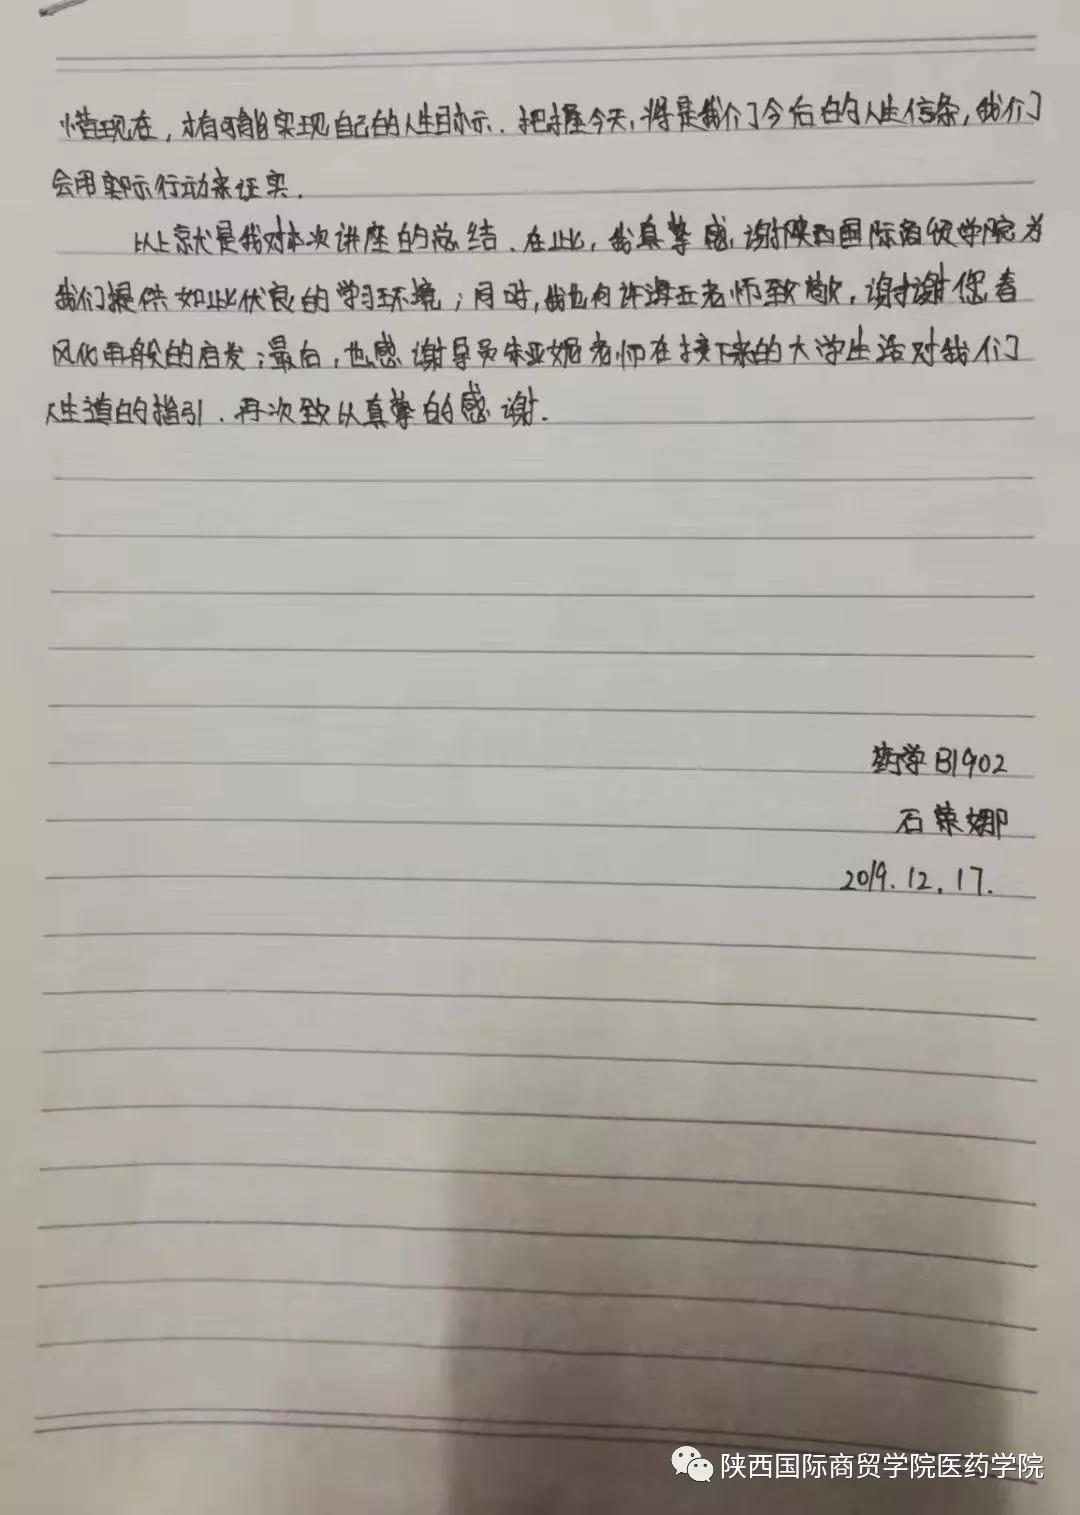 惜现在，才有可能实现自己的人生目标．把握今天，将是我们今后的人生信条，我们
会用实际行动来证实．
以上就是我对本次讲座的总结．在此，我真挚感谢陕西国际商贸学院为
我们提供如此优良的学习环境；同时，我也向许海丘老师致敬，谢谢您春
风化雨般的启发；最后，也感谢导员朱亚妮老师在接下来的大学生活对我们
人生道的指引．再次致以真挚的感谢．
药学B1902
石荣娜
2019.12.17.
陕西国际商贸学院医药学院